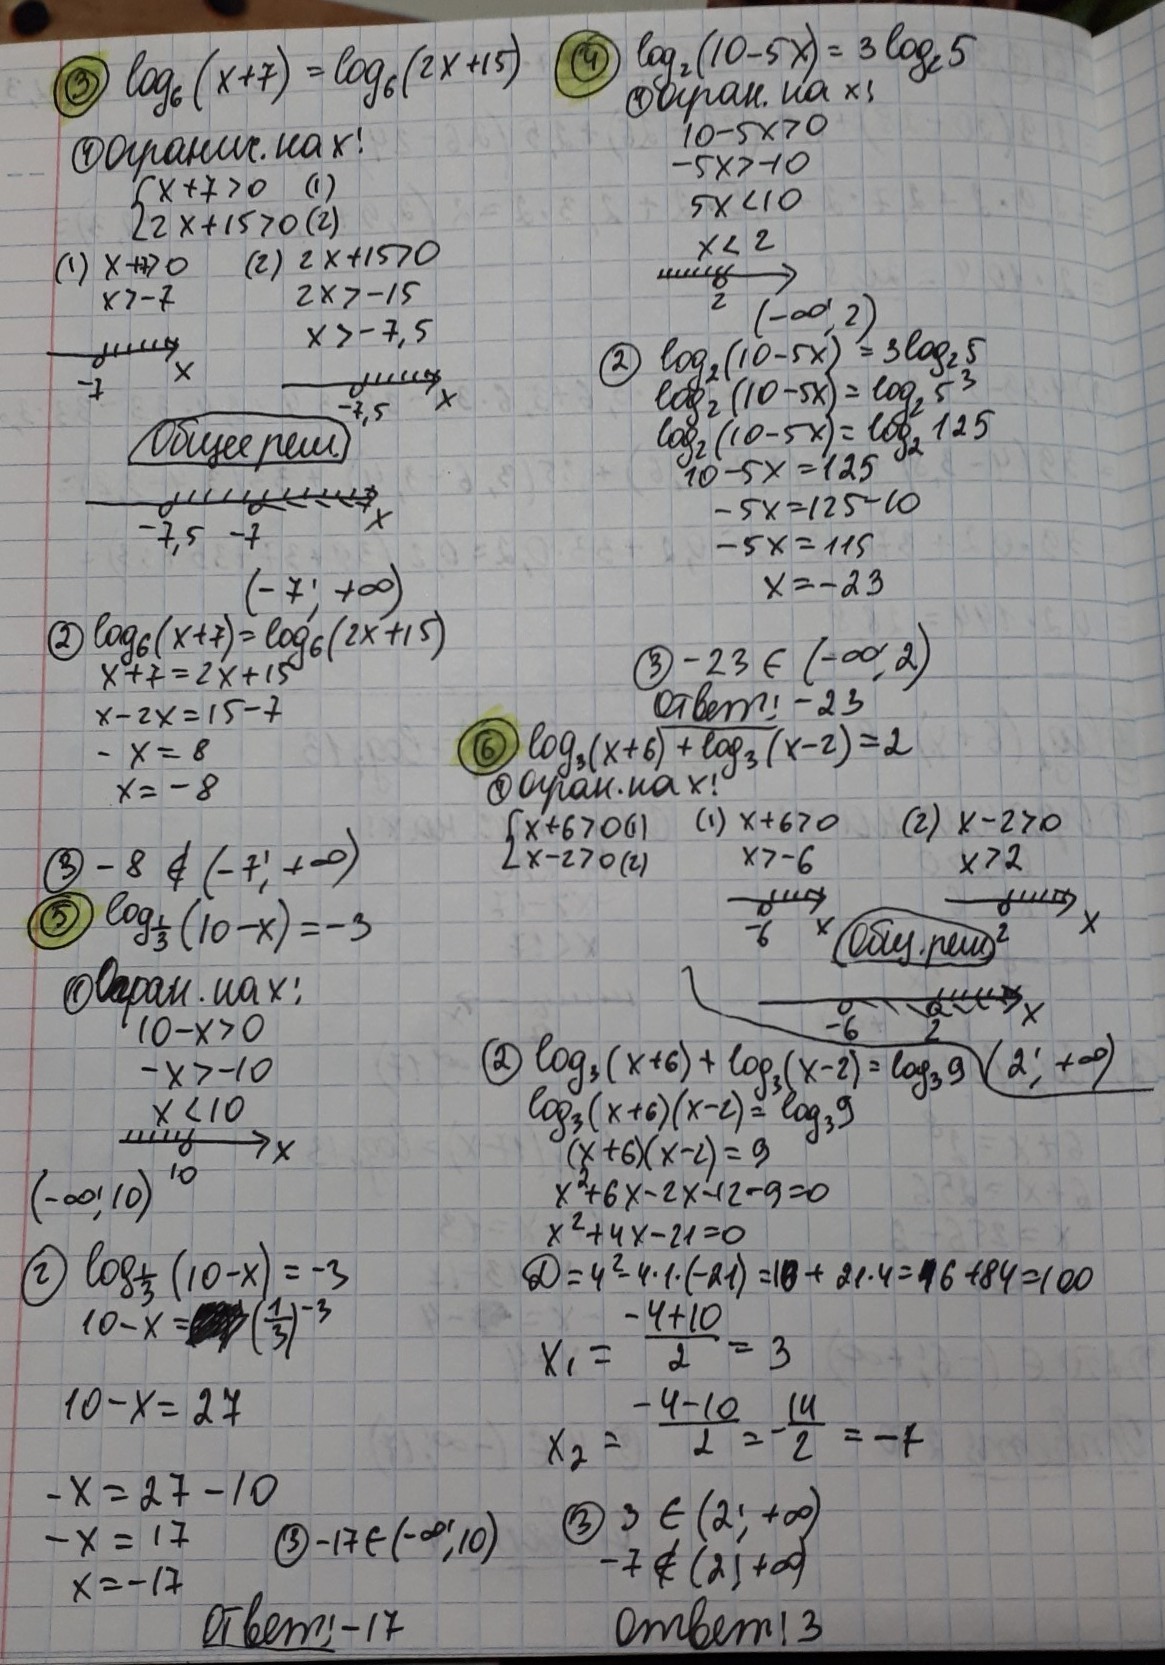 ③ log₆(x+7) = log₆(2x+15)
① Огранич. на x:
{ x+7>0 (1)
{ 2x+15>0 (2)
(1) x+7>0 (2) 2x+15>0
x>-7 2x>-15
x>-7,5
-7 x
-7,5 x
Общее реш.
-7,5 -7 x
(-7; +∞)
② log₆(x+7)=log₆(2x+15)
x+7=2x+15
x-2x=15-7
-x=8
x=-8
③ -8 ∉ (-7; +∞)
⑤ log_{1/3}(10-x)=-3
① Огран. на x:
10-x>0
-x>-10
x<10
10 x
(-∞; 10)
② log_{1/3}(10-x)=-3
10-x= (1/3)^{-3}
10-x=27
-x=27-10
-x=17
x=-17
③ -17∈(-∞; 10)
Ответ: -17
④ log₂(10-5x)=3log₂5
① Огран. на x:
10-5x>0
-5x>-10
5x<10
x<2
2
(-∞; 2)
② log₂(10-5x)=3log₂5
log₂(10-5x)=log₂5³
log₂(10-5x)=log₂125
10-5x=125
-5x=125-10
-5x=115
x=-23
③ -23∈(-∞; 2)
Ответ: -23
⑥ log₃(x+6)+log₃(x-2)=2
① Огран. на x:
{ x+6>0 (1) (1) x+6>0 (2) x-2>0
{ x-2>0 (2) x>-6 x>2
-6 x 2 x
Общ. реш.
-6 2 x
② log₃(x+6)+log₃(x-2)=log₃9 (2; +∞)
log₃(x+6)(x-2)=log₃9
(x+6)(x-2)=9
x²+6x-2x-12-9=0
x²+4x-21=0
D=4²-4·1·(-21)=16+21·4=16+84=100
x₁ = (-4+10)/2 = 3
x₂ = (-4-10)/2 = -14/2 = -7
③ 3 ∈ (2; +∞)
-7 ∉ (2; +∞)
Ответ: 3